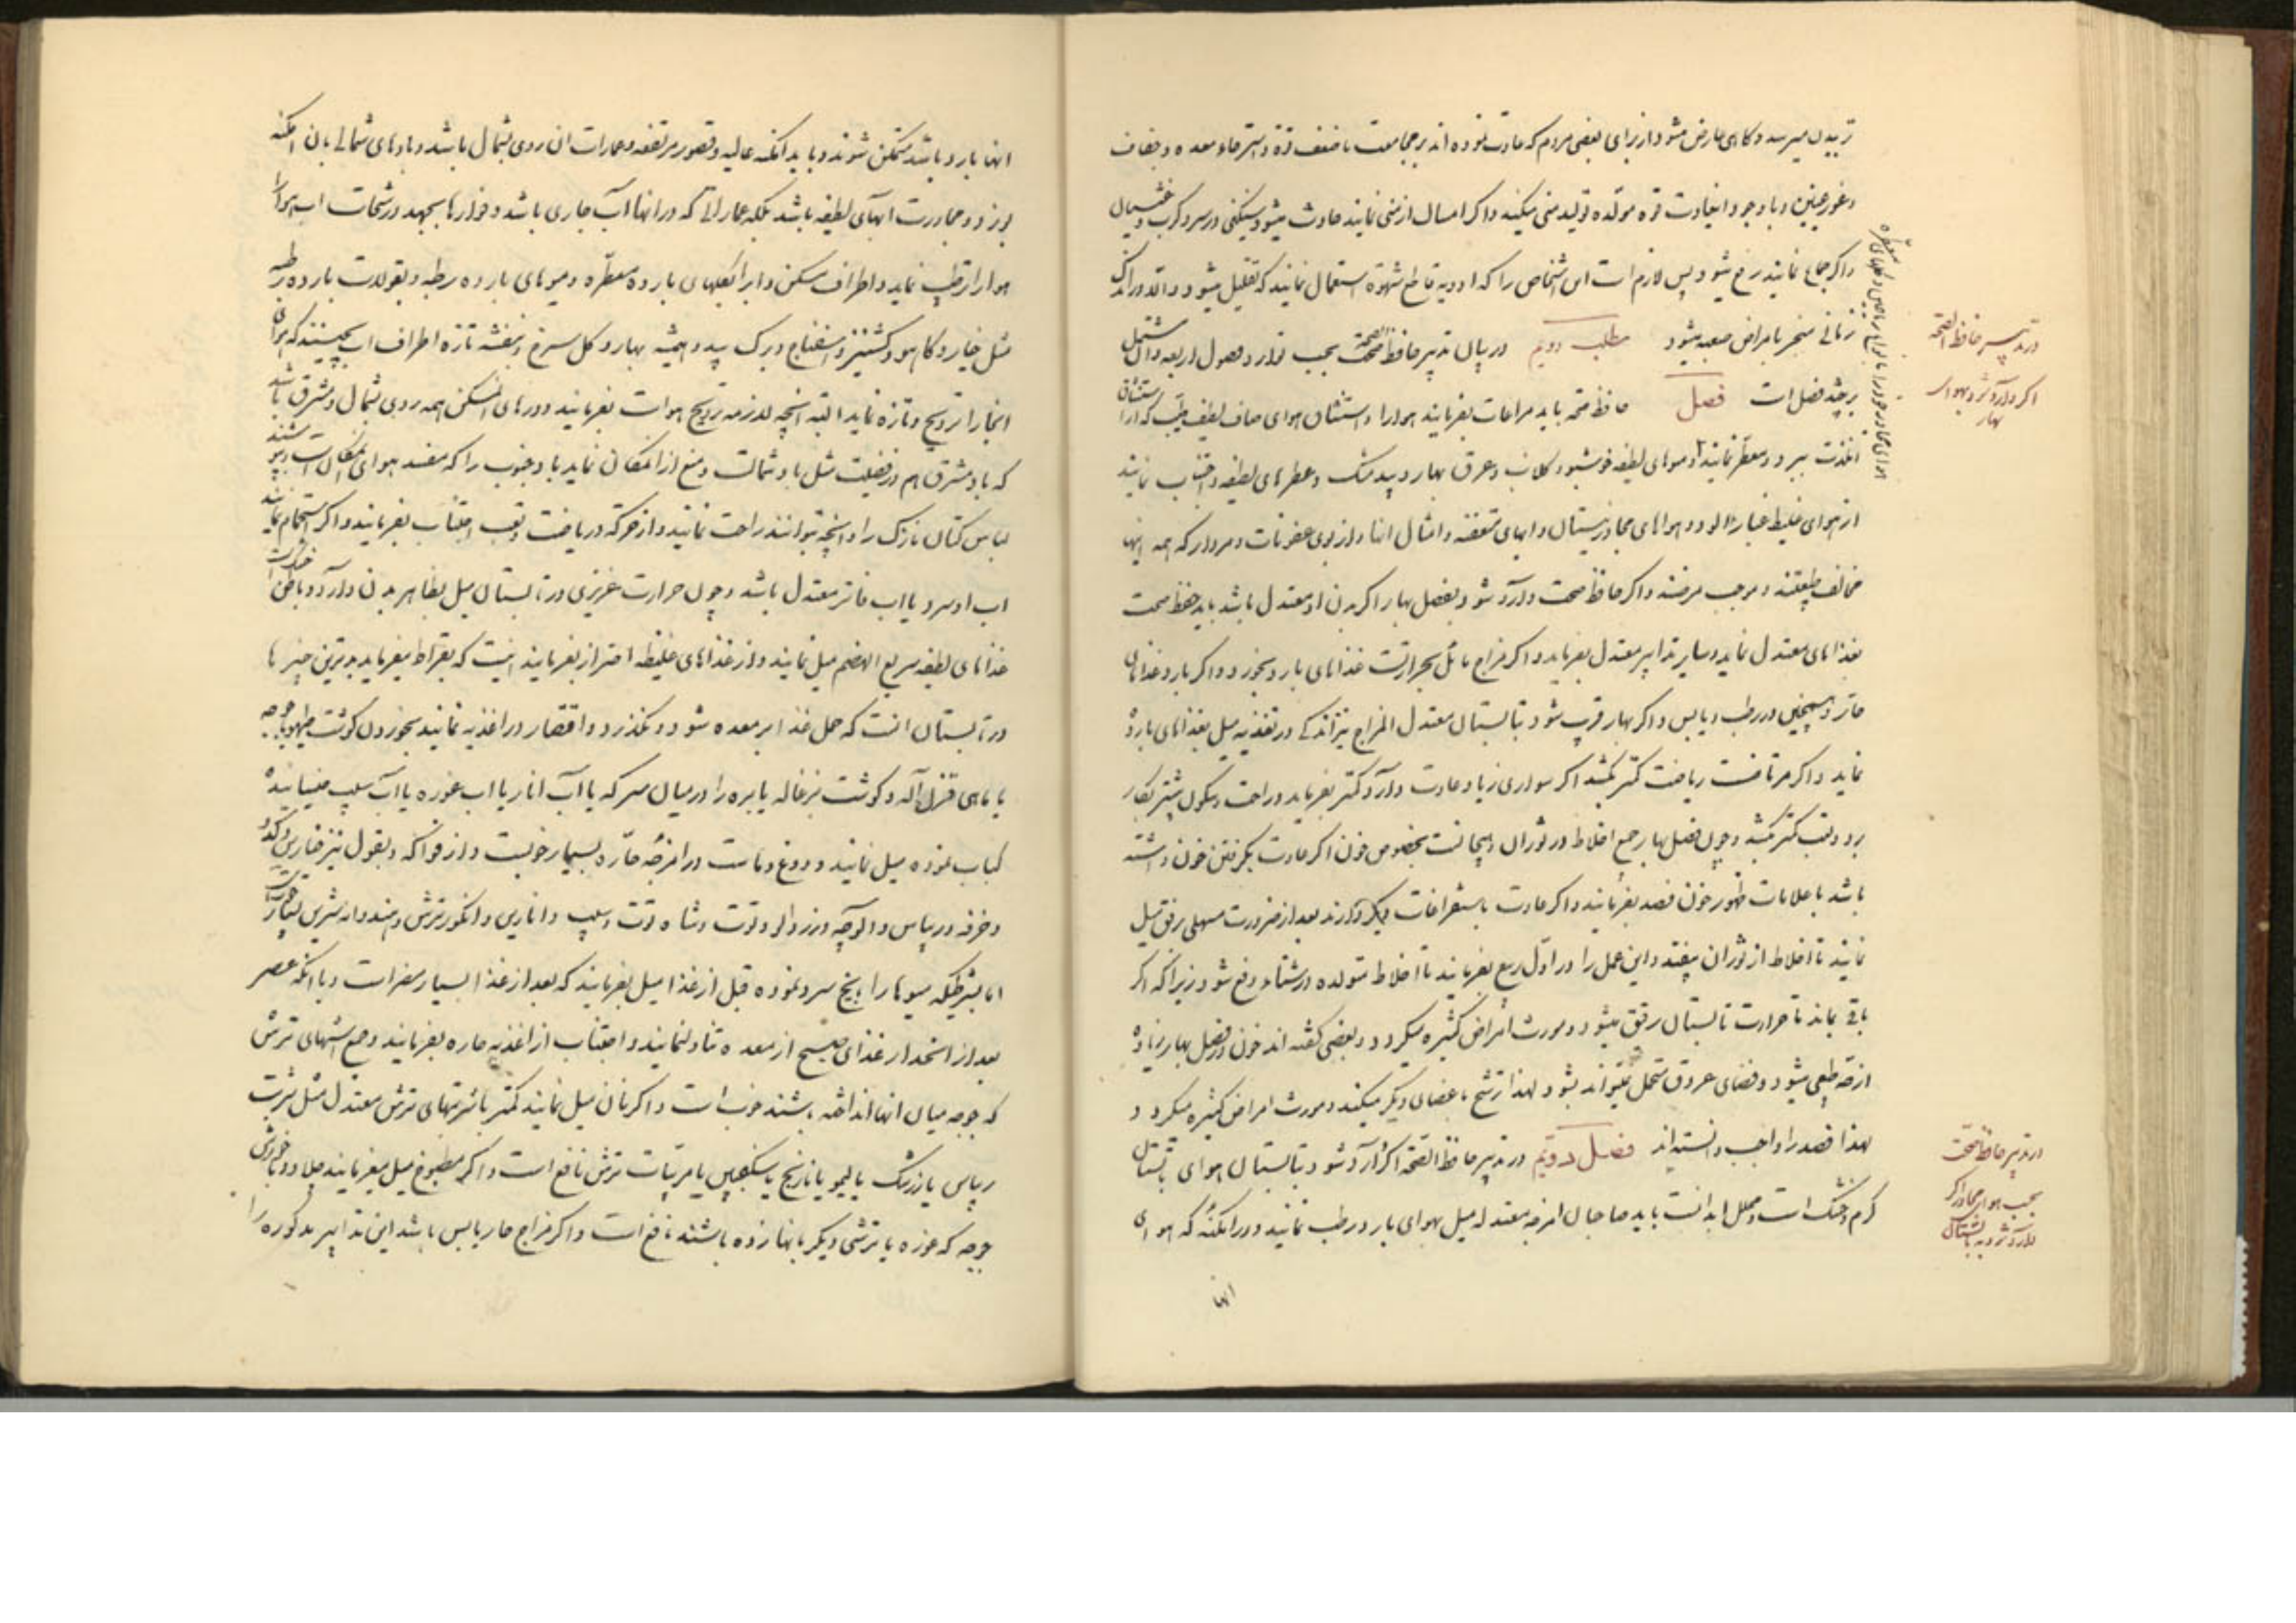 تربیدن میرسد و کاهی عارض میشود از برای بعضی مردم که عادت نموده اند بر مجامعت با ضعف قوة و استرخاء معده و خفقان
و غور عینین و با وجود اینعادت قوه مولده تولید منی میکند و اکر امساک از منی نمایند حادث میشود سنکینی در سر و کرب و غثیان
و اکر جماع نمایند رفع میشود پس لازم است این اشخاص را که ادویه قاطع شهوة استعمال نمایند که تقلیل میشود و الا در اندک
زمانی منجر بامراض صعبه میشود مطلب دویم در بیان تدبیر حافظ الصحة بحسب توارد فصول اربعه و ان مشتمل
بر چند فصل است فصل حافظ صحة باید مراعات بفرمایند هوا را و استنشاق هوای صاف لطیف طیب که از استنشاق
لذت ببرد و معطر نمایند و هوای لطیفه خوشبو و کلاب و عرق بهار و بید مشک و عطرهای لطیفه و اجتناب نمایند
از هوای غلیظ غبار الود و هواهای مجاور نیستان و ابهای متعفنه و امثال انها و از بوی عفونات و مردار که همه اینها
مخالف طبیعتند و موجب مرضند و اکر حافظ صحت وارد شود بفصل بهار اکر بدن او معتدل باشد باید حفظ صحت
بغذاهای معتدل نماید و سایر تدابیر معتدل بفرماید و اکر مزاج مائل بحرارتست غذاهای بارد بخورد و اکر بارد غذاهای
حار و همچنین در رطب و یابس و اکر بهار قریب شود بتابستان معتدل المزاج نیز اندکی در تغذیه میل بغذاهای بارده
نماید و اکر مرتاضست ریاضت کمتر بکشد اکر سواری زیاد عادت دارد کمتر بفرماید و راحت و سکون بیشتر بکار
برد و تعب کمتر بکشد و چون فصل بهار جمیع اخلاط در ثوران و هیجانست بخصوص خون اکر عادت بکرفتن خون داشته
باشد با علامات ظهور خون فصد بفرمایند و اکر عادت باستفراغات دیکر دارند بعد از ضرورت مسهلی برفق میل
نمایند تا اخلاط از ثوران بیفتد و این عمل را در اول ربیع بفرمایند تا اخلاط متولده در شتاء دفع شود زیرا که اکر
باقی بماند تا حرارت تابستان رقیق میشود و مورث امراض کثیره میکردد و بعضی کفته اند خون در فصل بهار زیاده
از قدر طبیعی میشود و فضای عروق متحمل نمیتواند بشود لهذا ترشح باعضای دیکر میکند و مورث امراض کثیره میکردد و
لهذا فصد را واجب دانسته اند فصل دویم در تدبیر حافظ الصحة اکر وارد شود بتابستان هوای تابستان
کرم و خشک است و محلل ابدانست باید صاحبان امزجه معتدله میل بهوای بارد و رطب نمایند و در امکنه که هوای
انها
در تدبیر حافظ الصحة
اکر وارد شود بهوای
بهار
در تدبیر حافظ صحت
بحسب هوای مجاور اکر
وارد شود به تابستان
انها بارد باشد متمکن شوند و باید امکنه عالیه و قصور مرتفعه و عمارات ان روی بشمال باشد و بادهای شمالی بان امکنه
بوزد و مجاورت ابهای لطیفه باشد بلکه عماراتی که در انها آب جاری باشد و فوارها بجهد و رشحات اب هوا را
هوا را ترطیب نماید و اطراف مسکن و ابرا بکلهای بارده معطره و میوهای بارده رطبه و بقولات بارده رطبه
مثل خیار و کاهو و کشنیز و اسفناج و برک بید و همیشه بهار و کل سرخ و بنفشه تازه اطراف اب بچینند که هوای
انجا را ترویح و تازه نماید البته انچه لازمه ترویح هواست بفرمایند و درهای انمسکن همه روی بشمال و مشرق باشد
که باد مشرق هم در فضیلت مثل باد شمالست و منع از انمکان نماید باد جنوب را که مفسد هوای انمکان است و بپوشند
لباس کتان نازک را و انچه بتوانند راحت نمایند و از حرکه و ریاضت و تعب اجتناب بفرمایند و اکر استحمام نمایند
اب او سرد یا اب فاتر معتدل باشد و چون حرارت غریزی در تابستان میل بظاهر بدن دارد و باطن خنک است
غذاهای لطیفه سریع الهضم میل نمایند و از غذاهای غلیظه احتراز بفرمایند اینست که بقراط میفرماید بدترین چیزها
در تابستان انست که حمل غذا بر معده شود و نکذرد و اقتصار در اغذیه نمایند بخوردن کوشت طیهو یا جوجه
یا ماهی قزل آله و کوشت بزغاله یا بره را در میان سرکه یا آب انار یا اب غوره یا آب سیب خیسانیده
کباب نموده میل نمایند و دوغ و ماست در امزجه حاره بسیار خوبست و از فواکه و بقول نیز خیارین و کدو
و خرفه و ریباس و الوچه و زردالو و توت و شاه توت و سیب و اناری و انکور ترش و هندوانه شیرین
اما بشرطیکه میوها را بیخ سرد نموده قبل از غذا میل بفرمایند که بعد از غذا بسیار مضر است و یا انکه عصر
بعد از انحدار غذای صبح از معده تناول نمایند و اجتناب از اغذیه حاره بفرمایند و جمیع اشهای ترش
که جوجه میان انها انداخته باشند خوب است و اکر نان میل نمایند کمتر با شربتهای ترش معتدل مثل شربت
ریباس یا زرشک یا لیمو یا نارنج یا سکنجبین یا مربیات ترش نافع است و اکر مطبوخ میل میفرمایند چلاو و با خورش
جوجه که غوره یا ترشی دیکر بانها زده باشند نافع است و اکر مزاج حار یابس باشد این تدابیر مذکوره را